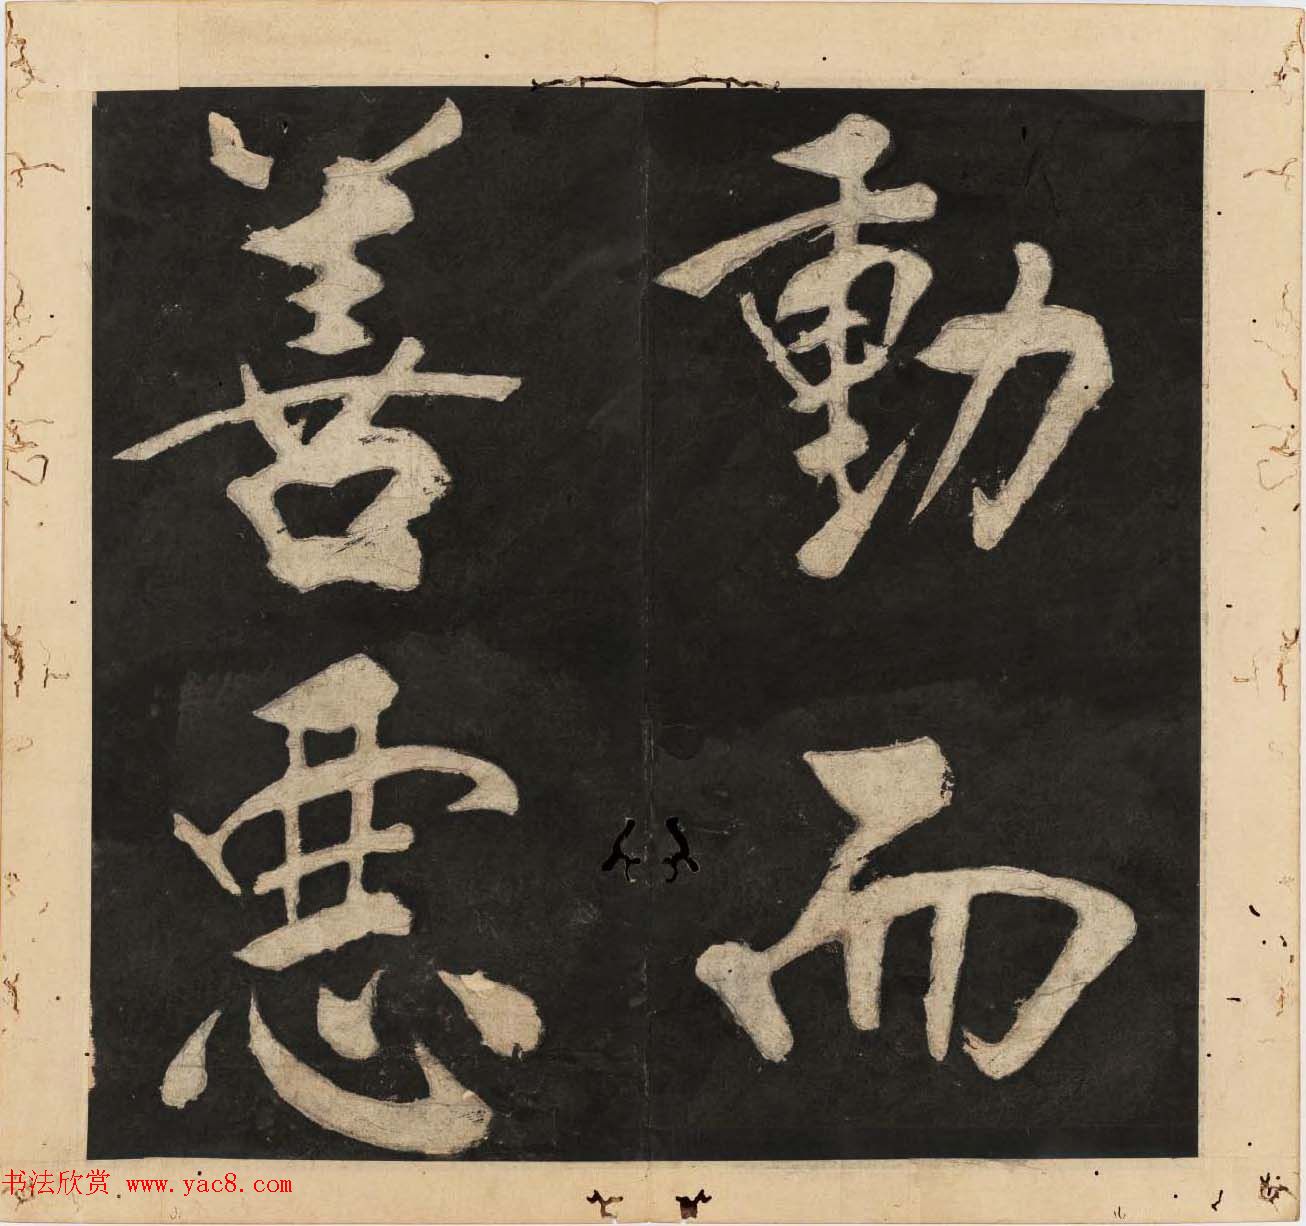 動而
善惡
书法欣赏 www.yac8.com